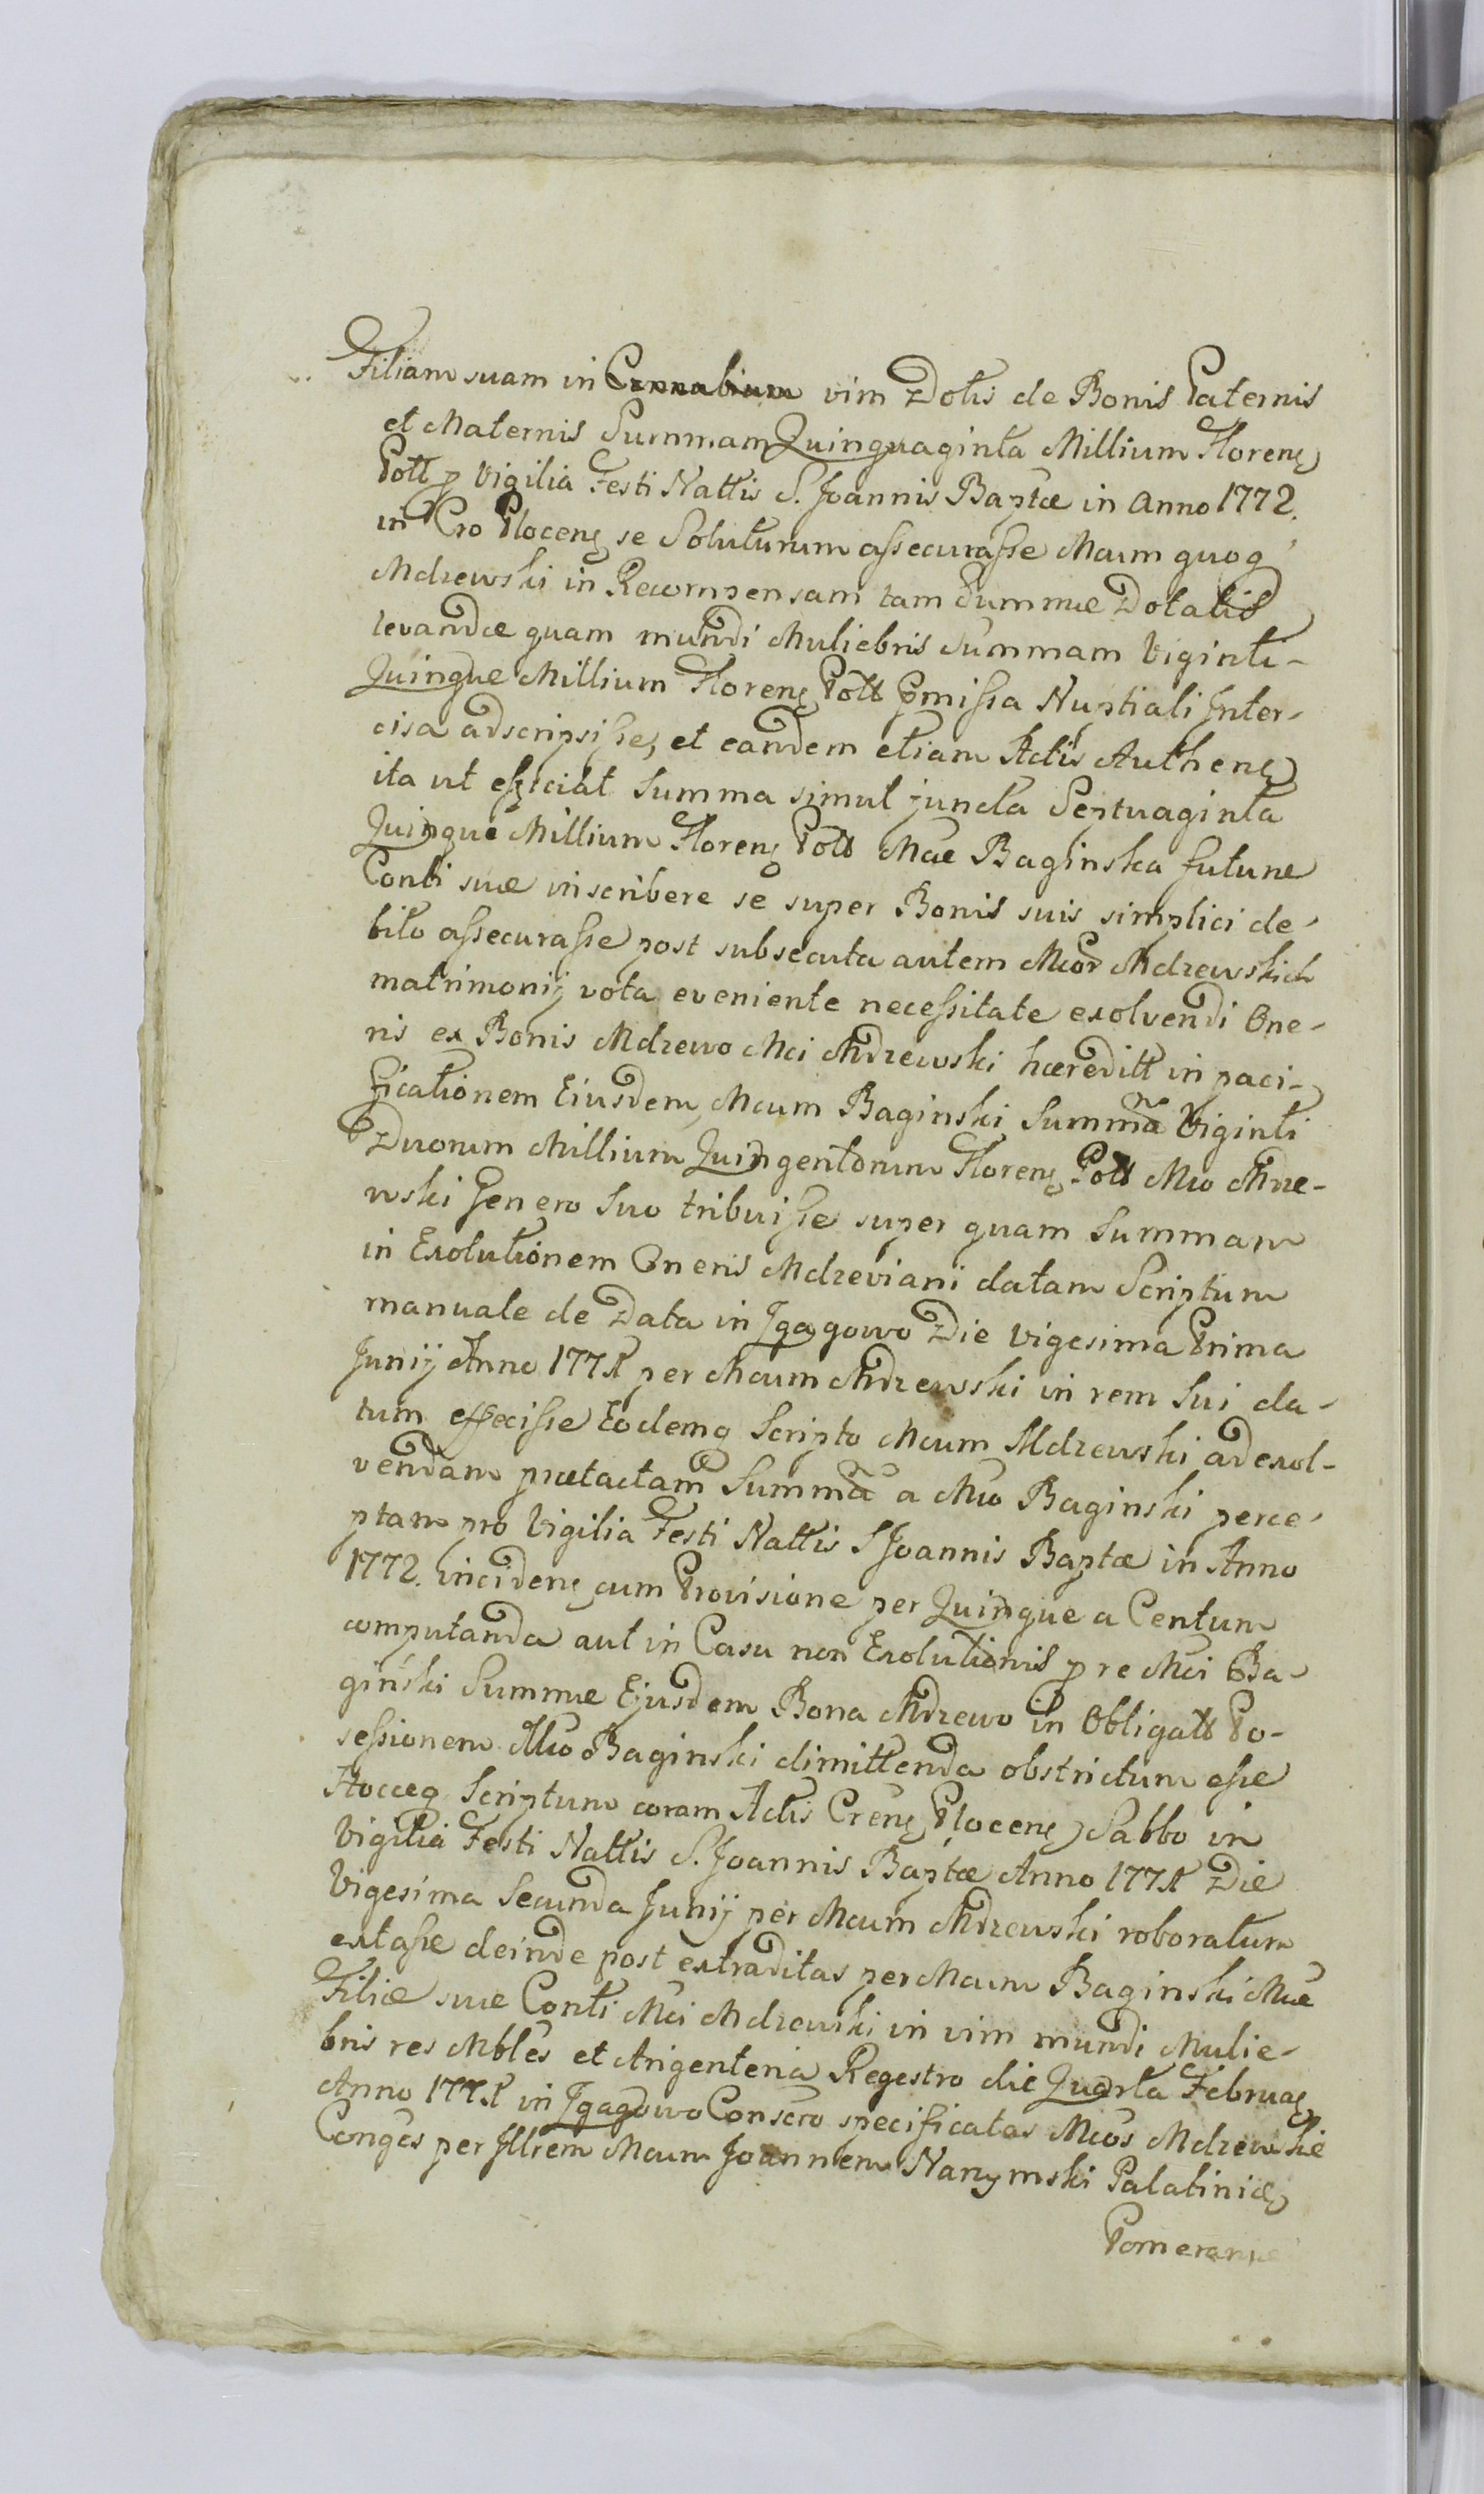 Filiam suam in Connubium vim Dotis de Bonis Paternis
et Maternis Summam Quinquaginta Millium Floreng
Poll p Vigilia Festi Nattis S. Joannis Baptæ in Anno 1772.
in Cro Ploceng se Soluturum assecurasse Mcum quoq
Mdzewski in Recompensam tam Summæ Dotalis
levandæ quam mundi Muliebris Summam Viginti-
Quinque Millium Floreng Poll Pmissa Nuptiali Inter-
cisa adscripsisse, et eandem etiam Actis Autheng
ita ut efficiat Summa simul juncta Septuaginta
Quinque Millium Floreng Poll Mcæ Baginska futuræ
Conti suæ inscribere se super Bonis suis simplici de-
bito assecurasse post subsecuta autem Mcor Mdzewskich
matrimonij vota eveniente necessitate exolvendi One-
ris ex Bonis Mdzewo Mci Mdzewski hæreditt in paci-
ficationem Eiusdem, Mcum Baginski Summã Viginti
Duorum Millium Quingentorum Floreng Poll Mco Mdze-
wski Genero Suo tribuisse super quam Summam
in Exolutionem Oneris Mdzeviani datam Scriptum
manuale de Data in Jgagowo Die vigesima Prima
Junij Anno 1771 per Mcum Mdzewski in rem Sui da-
tum effecisse Eodemq Scripto Mcum Mdzewski ad exol-
vendam prætactam Summã a Mco Baginski perce-
ptam pro Vigilia Festi Nattis S Joannis Baptæ in Anno
1772. incideng cum Provisione per Quinque a Centum
computanda aut in Casu non Exolutionis p re Mci Ba-
ginski Summæ Ejusdem Bona Mdzewo in Obligatt Po-
sessionem Mco Baginski dimittenda obstrictum esse
Hocceq Scriptum coram Actis Creng Ploceng Sabbo in
Vigilia Festi Nattis S. Joannis Baptæ Anno 1771 Die
Vigesima Secunda Junij per Mcum Mdzewski roboratum
extasse deinde post extraditas per Mcum Baginski Mcæ
Filiæ suæ Conti Mci Mdzewski in vim mundi Mulie-
bris res Mbles et Argenteria Regestro die Quarta Februag
Anno 1771 in Jgagowo Consero specificatas Mcos Mdzewskie
Conges per Jllrem Mcum Joannem Narzymski Palatinidg
Pomeraniæ